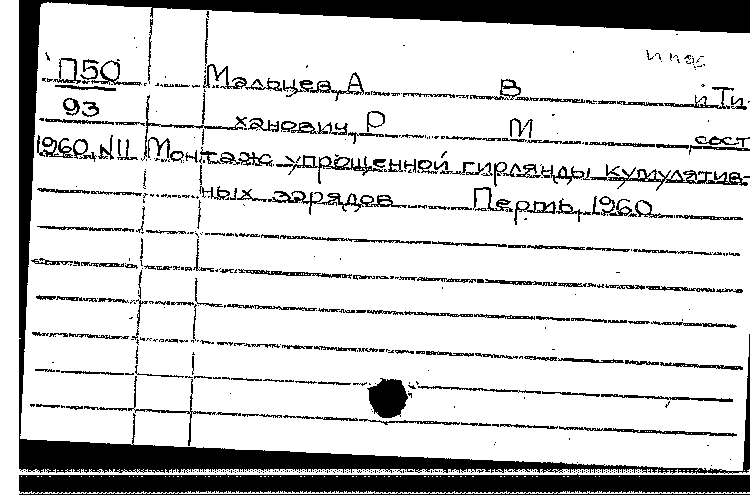 П50 Мальцев, А В и Ти-
93 ханович, Р М сост
1960, N11 Монтаж упрощенной гирлянды кумулятив-
ных зарядов Пермь, 1960